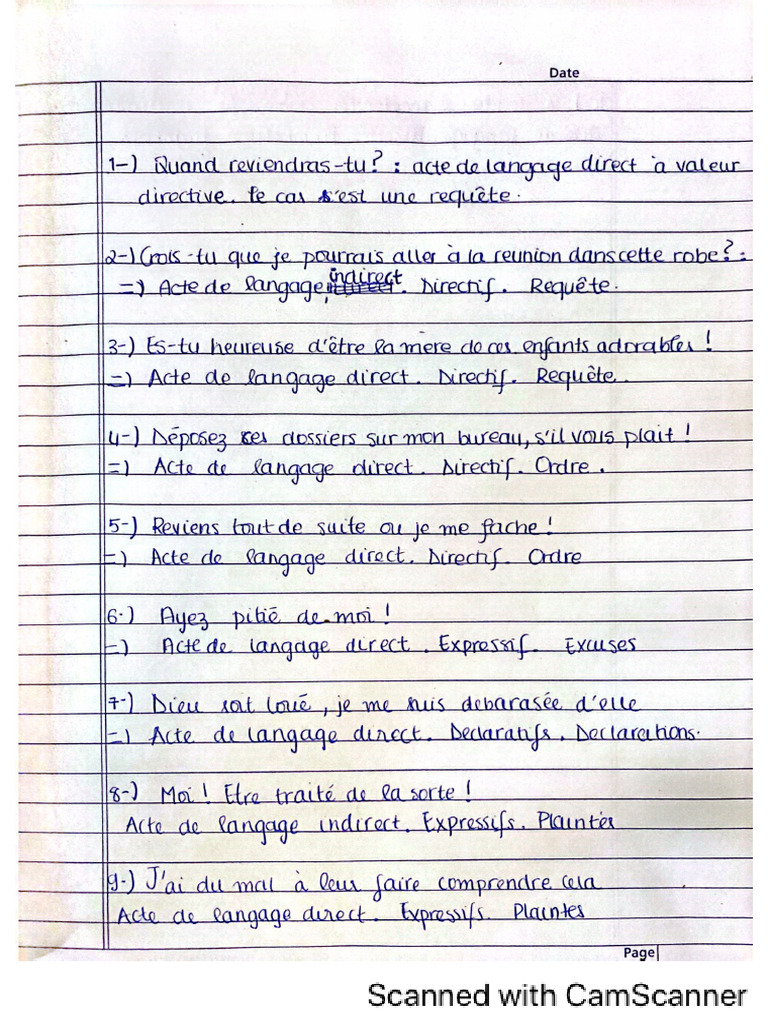 Date
1-) Quand reviendras-tu? : acte de langage direct à valeur
directive. Le cas s'est une requête.
2-) Crois-tu que je pourrais aller à la reunion dans cette robe? :
=) Acte de langage indirect. Directif. Requête.
3-) Es-tu heureuse d'être la mère de ces enfants adorables !
=) Acte de langage direct. Directif. Requête.
4-) Déposez ces dossiers sur mon bureau, s'il vous plait !
=) Acte de langage direct. Directif. Ordre.
5-) Reviens tout de suite ou je me fache !
=) Acte de langage direct. Directif. Ordre
6-) Ayez pitié de moi !
=) Acte de langage direct. Expressif. Excuses
7-) Dieu soit loué, je me suis debarasée d'elle
=) Acte de langage direct. Declaratifs. Declarations.
8-) Moi ! Etre traité de la sorte !
Acte de langage indirect. Expressifs. Plaintes
9-) J'ai du mal à leur faire comprendre cela
Acte de langage direct. Expressifs. Plaintes
Page
Scanned with CamScanner